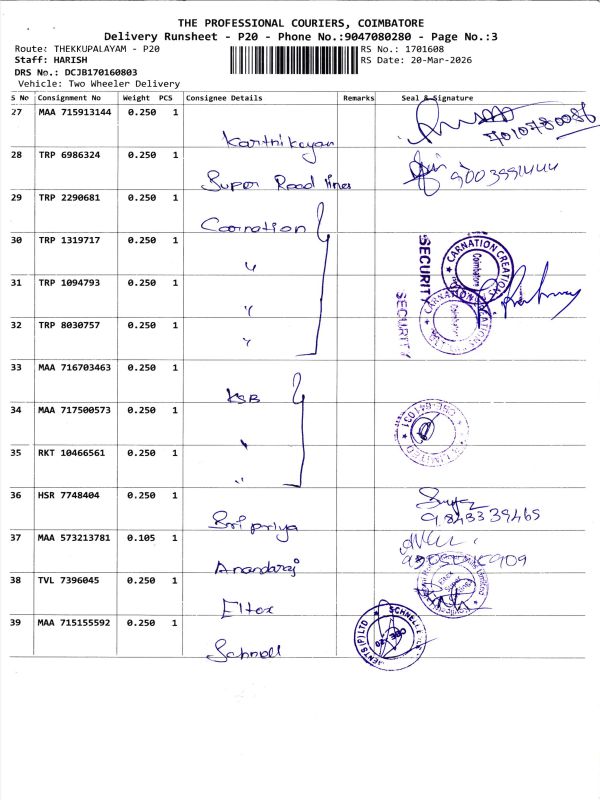 THE PROFESSIONAL COURIERS, COIMBATORE
Delivery Runsheet - P20 - Phone No.:9047080280 - Page No.:3
Route: THEKKUPALAYAM - P20
RS No.: 1701608
Staff: HARISH
RS Date: 20-Mar-2026
DRS No.: DCJB170160803
Vehicle: Two Wheeler Delivery
S No Consignment No Weight PCS Consignee Details Remarks Seal & Signature
27 MAA 715913144 0.250 1 Karthikeyan 7010780086
28 TRP 6986324 0.250 1 Super Road lines 9003991444
29 TRP 2290681 0.250 1 Coornation
30 TRP 1319717 0.250 1 " SECURITY CARNATION CREATIONS Coimbatore
31 TRP 1094793 0.250 1 " SECURITY CARNATION CREATIONS Coimbatore
32 TRP 8030757 0.250 1 "
33 MAA 716703463 0.250 1 KSB
34 MAA 717500573 0.250 1 " LIMITED
35 RKT 10466561 0.250 1 "
36 HSR 7748404 0.250 1 Sri priya 9843339465
37 MAA 573213781 0.105 1 Anandaraj
38 TVL 7396045 0.250 1 Eltex Limited
39 MAA 715155592 0.250 1 Schnell SCHNELL